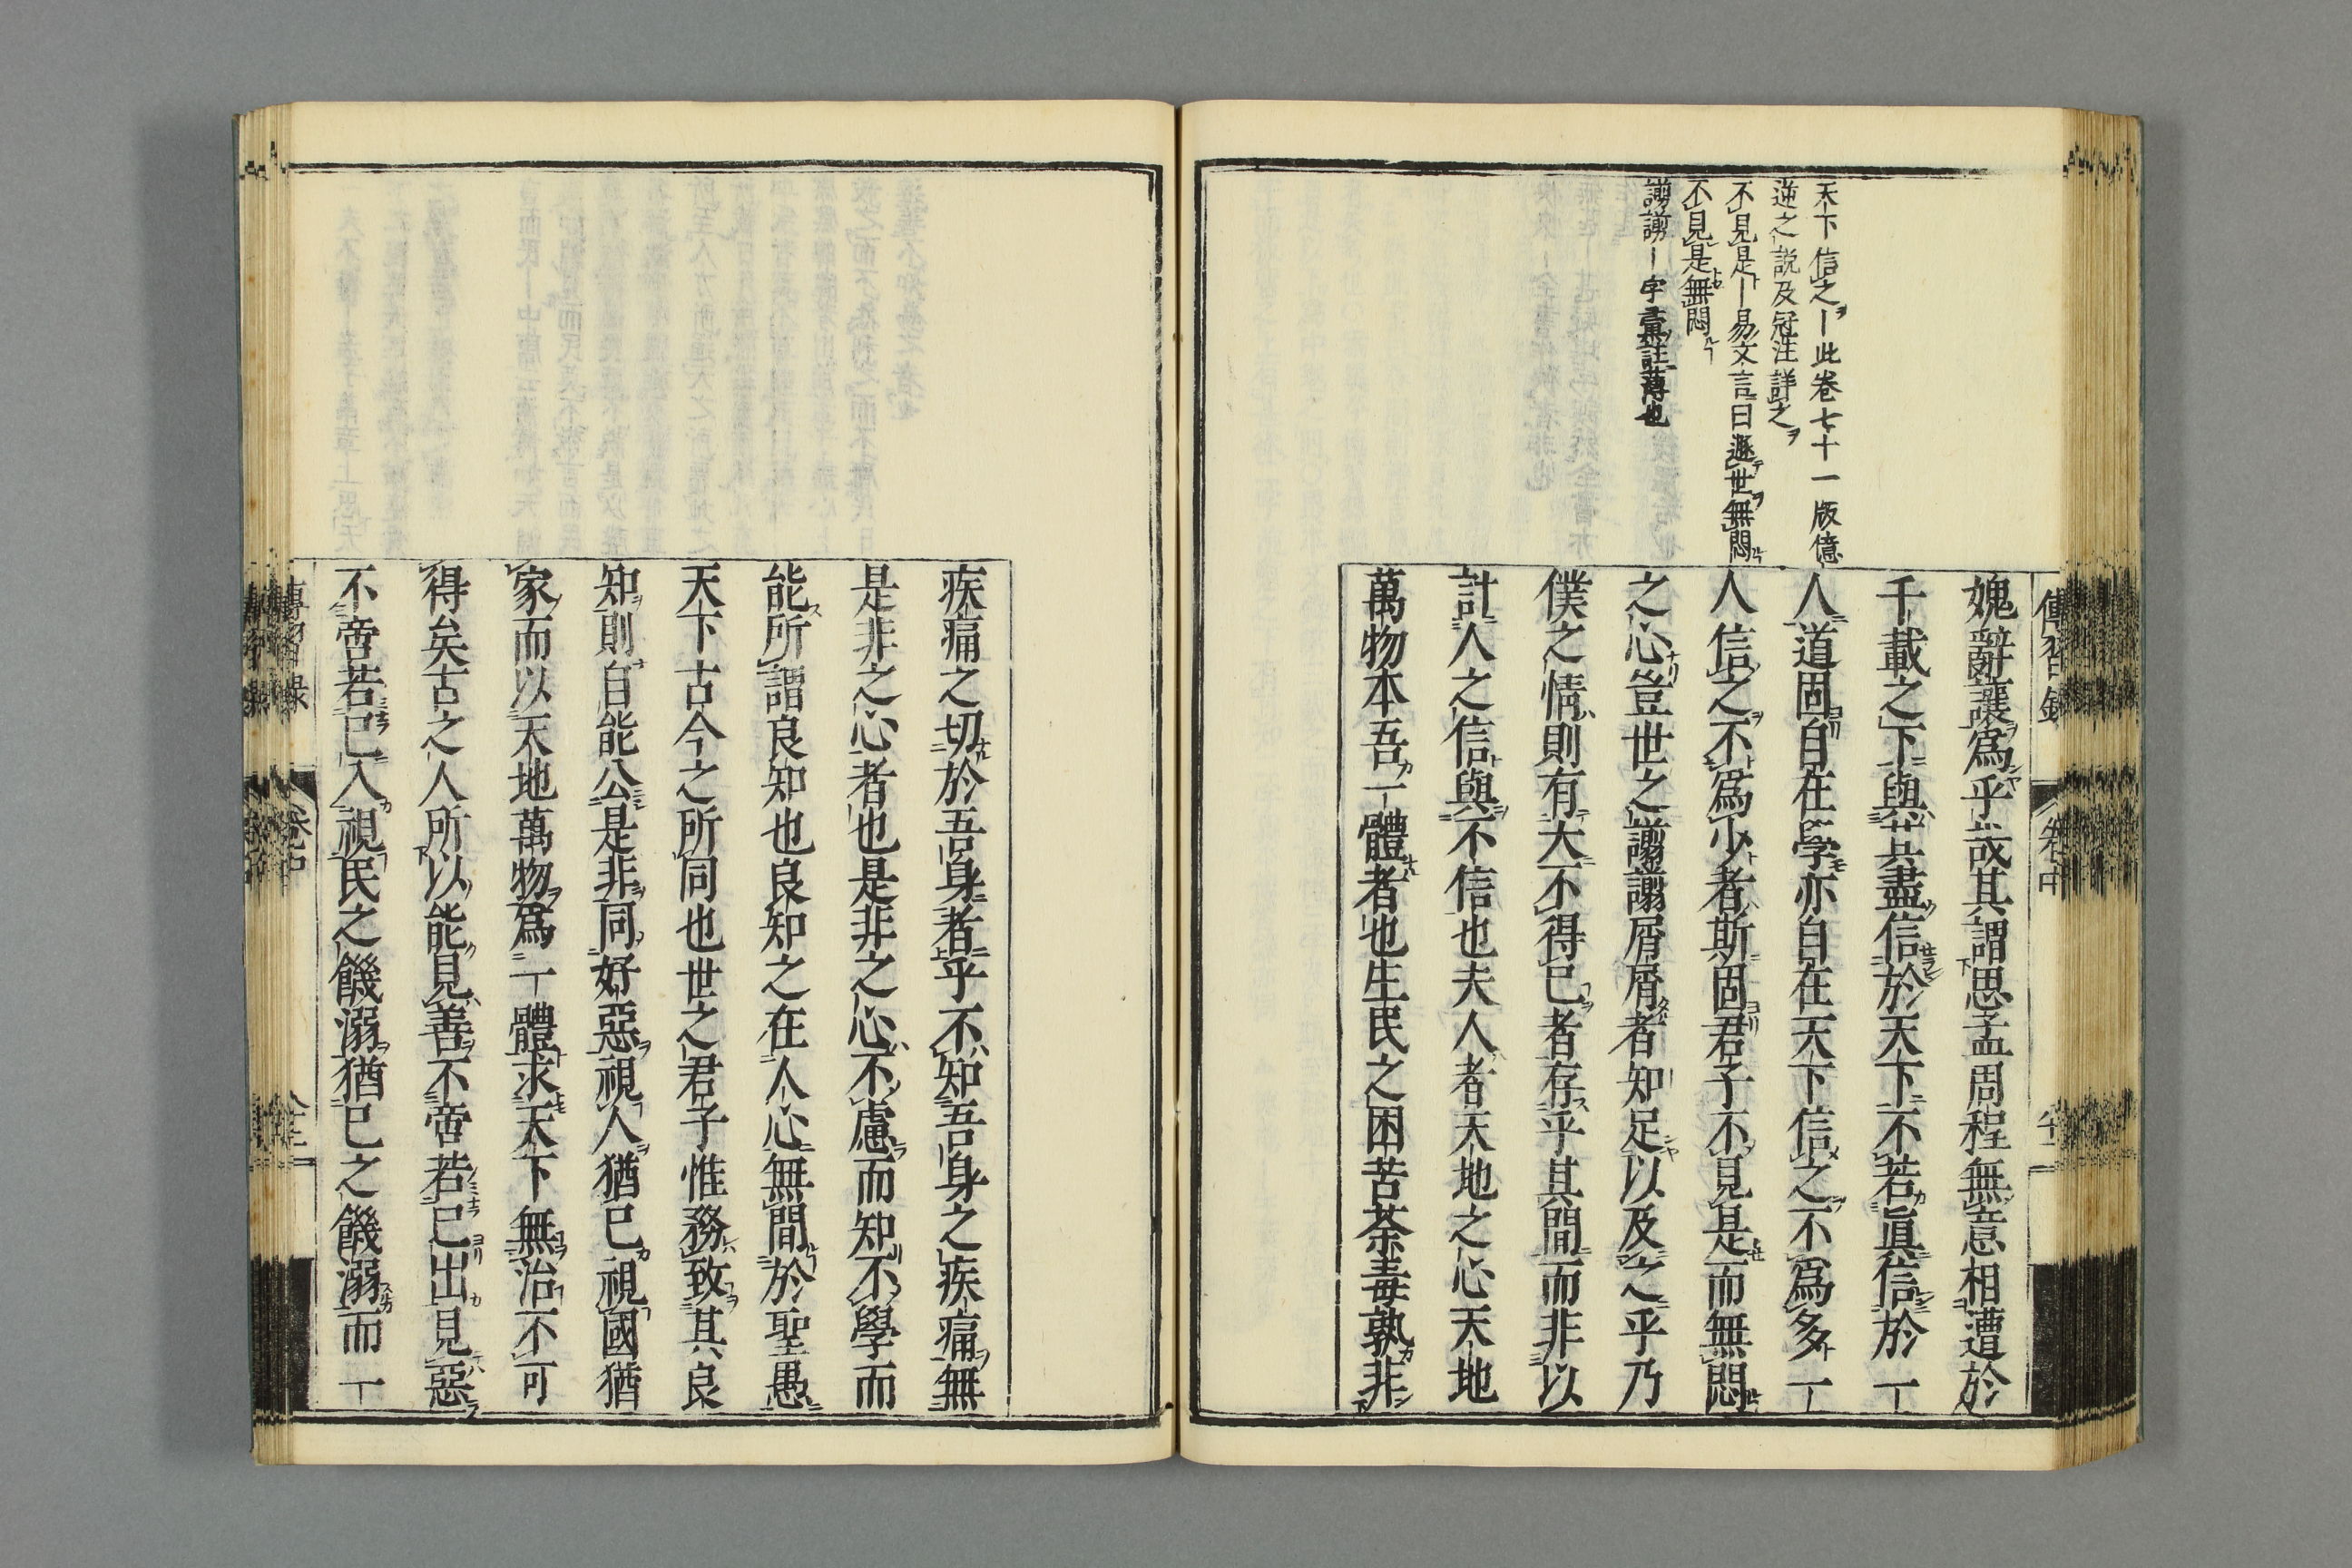 傳習錄
卷中
天下信之ヲー此卷七十一版億
逆之說及冠注詳之ヲ
不見是トー易文言曰遯世無悶
不見是無悶
謭謭ー字彙註薄也
媿辭讓爲乎哉其謂思孟周程無意相遭於
千載之下與其盡信於天下不若眞信於一
人道固自在學亦自在天下信之不爲多一
人信之不爲少者斯固君子不見是而無悶
之心豈世之謭謭屑屑者知足以及之乎乃
僕之情則有大不得已者存乎其間而非以
計人之信與不信也夫人者天地之心天地
萬物本吾一體者也生民之困苦荼毒孰非
疾痛之切於吾身者乎不知吾身之疾痛無
是非之心者也是非之心不慮而知不學而
能所謂良知也良知之在人心無間於聖愚
天下古今之所同也世之君子惟務致其良
知則自能公是非同好惡視人猶己視國猶
家而以天地萬物爲一體求天下無治不可
得矣古之人所以能見善不啻若己出見惡
不啻若己入視民之饑溺猶己之饑溺而一
傳習錄
卷中